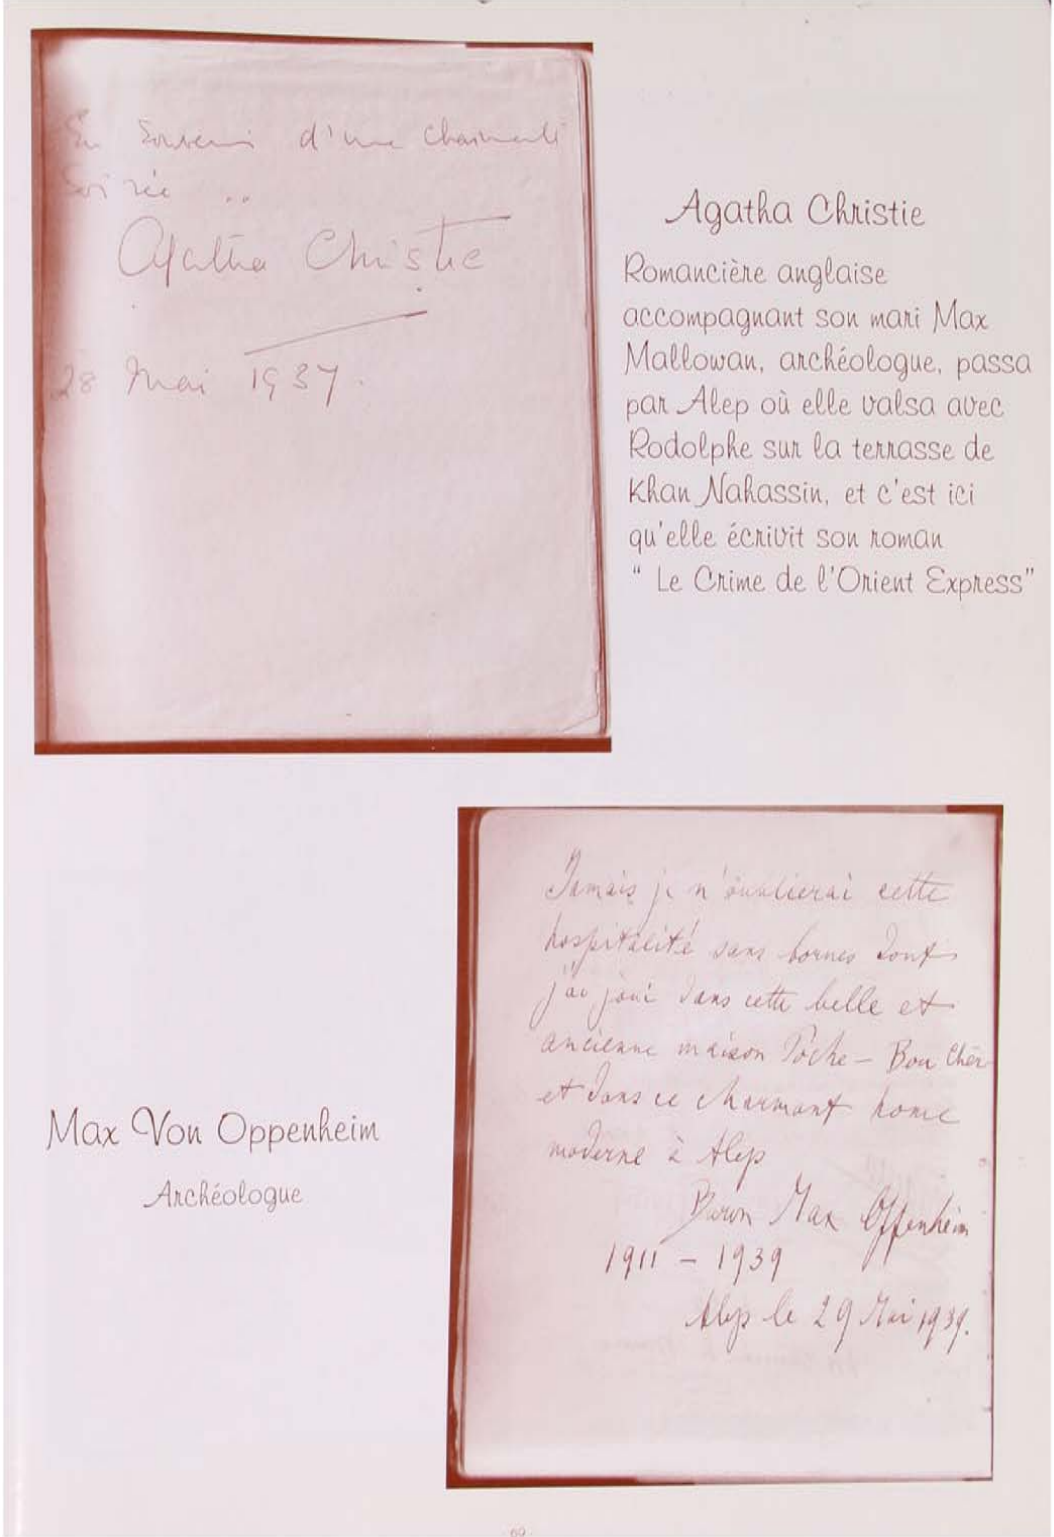 En Souvenir d'une charmante
Soirée ..
Agatha Christie
28 Mai 1937.
Agatha Christie
Romancière anglaise
accompagnant son mari Max
Mallowan, archéologue, passa
par Alep où elle valsa avec
Rodolphe sur la terrasse de
Khan Nahassin, et c'est ici
qu'elle écrivit son roman
" Le Crime de l'Orient Express"
Jamais je n'oublierai cette
hospitalité sans bornes dont
j'ai joui dans cette belle et
ancienne maison Poche –
et dans ce charmant home
moderne à Alep
Baron Max Oppenheim
1911 – 1939
Alep le 29 Mai 1939.
Max Von Oppenheim
Archéologue